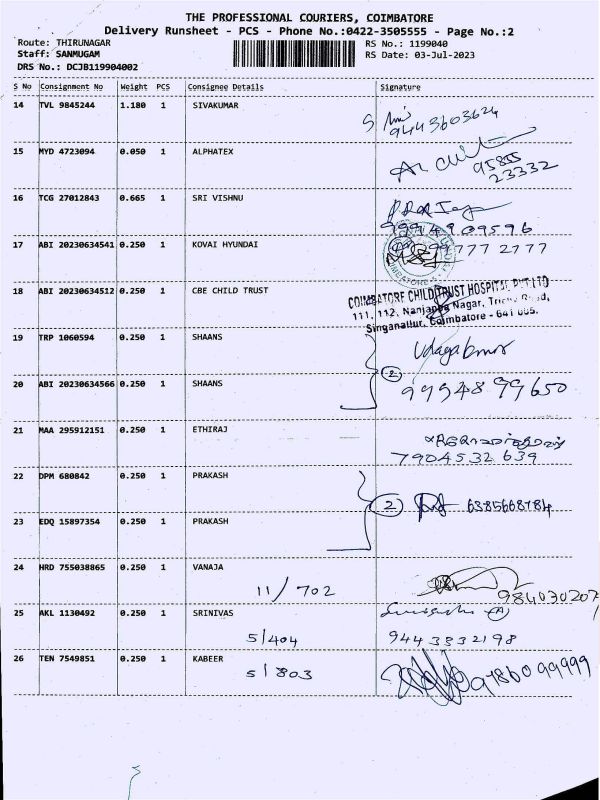 THE PROFESSIONAL COURIERS, COIMBATORE
Delivery Runsheet - PCS - Phone No.:0422-3505555 - Page No.:2
Route: THIRUNAGAR
RS No.: 1199040
Staff: SANMUGAM
RS Date: 03-Jul-2023
DRS No.: DCJB119904002
S No Consignment No Weight PCS Consignee Details Signature
14 TVL 9845244 1.180 1 SIVAKUMAR
9443603624
15 MYD 4723094 0.050 1 ALPHATEX
95855
23332
16 TCG 27012843 0.665 1 SRI VISHNU
9994909596
17 ABI 20230634541 0.250 1 KOVAI HYUNDAI
99777 2777
18 ABI 20230634512 0.250 1 CBE CHILD TRUST
COIMBATORE CHILD TRUST HOSPITAL PVT LTD
111, 112, Nanjappa Nagar, Road,
Singanallur, Coimbatore - 641 005.
19 TRP 1060594 0.250 1 SHAANS
Udayakumar
2
20 ABI 20230634566 0.250 1 SHAANS
9994899650
21 MAA 295912151 0.250 1 ETHIRAJ
7904532639
22 DPM 680842 0.250 1 PRAKASH
2 6385668784
23 EDQ 15897354 0.250 1 PRAKASH
24 HRD 755038865 0.250 1 VANAJA
11/702
984030207
25 AKL 1130492 0.250 1 SRINIVAS
5/404 9443832198
26 TEN 7549851 0.250 1 KABEER
5/803 9786099999